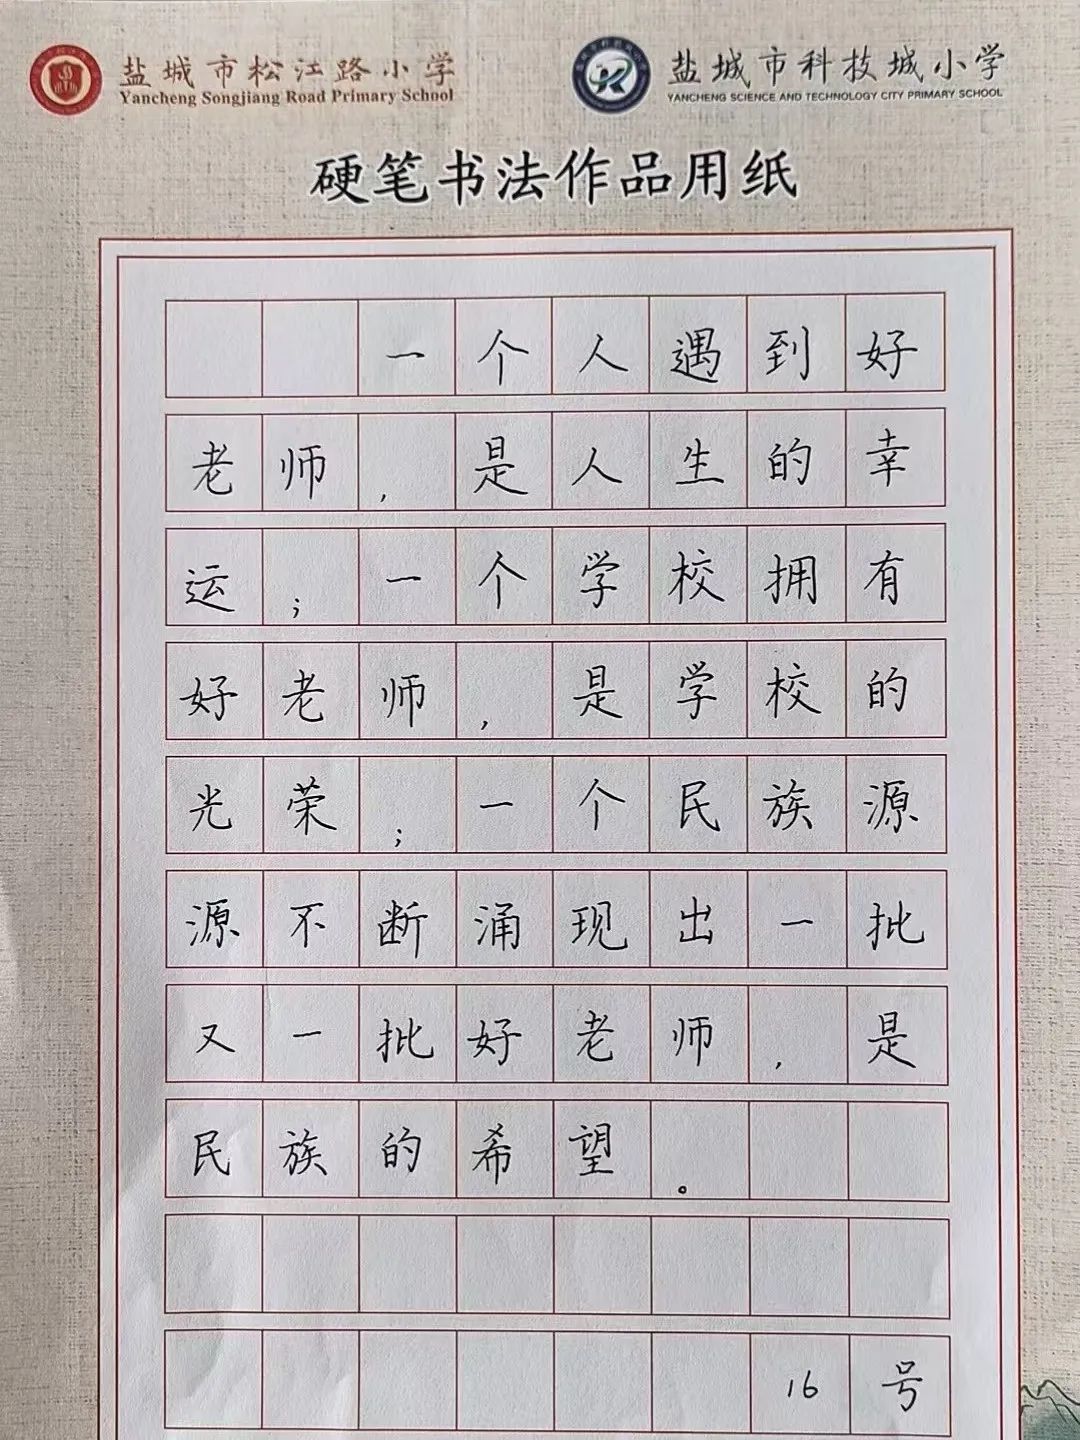 盐城市松江路小学
Yancheng Songjiang Road Primary School
盐城市科技城小学
YANCHENG SCIENCE AND TECHNOLOGY CITY PRIMARY SCHOOL
硬笔书法作品用纸
一个人遇到好
老师，是人生的幸
运；一个学校拥有
好老师，是学校的
光荣；一个民族源
源不断涌现出一批
又一批好老师，是
民族的希望。
16号